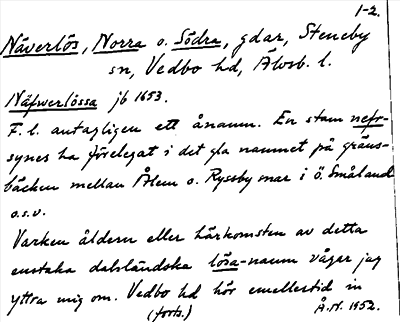 1-2.
Näverlös, Norra o. Södra, gdar, Steneby
sn, Vedbo hd, Älvsb. l.
Näfwerlössa jb 1653.
F. l. antagligen ett ånamn. En stam nefr-
synes ha förelegat i det gla namnet på gräns-
bäcken mellan Ålem o. Ryssby snar i ö. Småland
o.s.v.
Varken åldern eller härkomsten av detta
enstaka dalsländska lösa-namn vågar jag
yttra mig om. Vedbo hd hör emellertid in
(forts.)
Å.N. 1952.